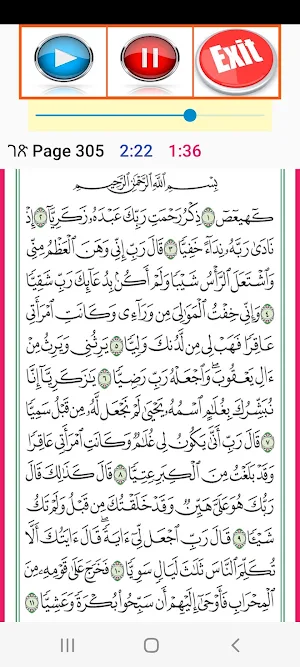 Exit
Page 305 2:22 1:36
بِسْمِ اللَّهِ الرَّحْمَٰنِ الرَّحِيمِ
كٓهيعٓصٓ ١ ذِكْرُ رَحْمَتِ رَبِّكَ عَبْدَهُۥ زَكَرِيَّآ ٢ إِذْ
نَادَىٰ رَبَّهُۥ نِدَآءً خَفِيًّا ٣ قَالَ رَبِّ إِنِّى وَهَنَ ٱلْعَظْمُ مِنِّى
وَٱشْتَعَلَ ٱلرَّأْسُ شَيْبًا وَلَمْ أَكُنۢ بِدُعَآئِكَ رَبِّ شَقِيًّا
٤ وَإِنِّى خِفْتُ ٱلْمَوَٰلِىَ مِن وَرَآءِى وَكَانَتِ ٱمْرَأَتِى
عَاقِرًا فَهَبْ لِى مِن لَّدُنكَ وَلِيًّا ٥ يَرِثُنِى وَيَرِثُ مِنْ
ءَالِ يَعْقُوبَ ۖ وَٱجْعَلْهُ رَبِّ رَضِيًّا ٦ يَٰزَكَرِيَّآ إِنَّا
نُبَشِّرُكَ بِغُلَٰمٍ ٱسْمُهُۥ يَحْيَىٰ لَمْ نَجْعَل لَّهُۥ مِن قَبْلُ سَمِيًّا
٧ قَالَ رَبِّ أَنَّىٰ يَكُونُ لِى غُلَٰمٌ وَكَانَتِ ٱمْرَأَتِى عَاقِرًا
وَقَدْ بَلَغْتُ مِنَ ٱلْكِبَرِ عِتِيًّا ٨ قَالَ كَذَٰلِكَ قَالَ
رَبُّكَ هُوَ عَلَىَّ هَيِّنٌ وَقَدْ خَلَقْتُكَ مِن قَبْلُ وَلَمْ تَكُ
شَيْـًٔا ٩ قَالَ رَبِّ ٱجْعَل لِّىٓ ءَايَةً ۚ قَالَ ءَايَتُكَ أَلَّا
تُكَلِّمَ ٱلنَّاسَ ثَلَٰثَ لَيَالٍ سَوِيًّا ١٠ فَخَرَجَ عَلَىٰ قَوْمِهِۦ مِنَ
ٱلْمِحْرَابِ فَأَوْحَىٰٓ إِلَيْهِمْ أَن سَبِّحُوا۟ بُكْرَةً وَعَشِيًّا ١١